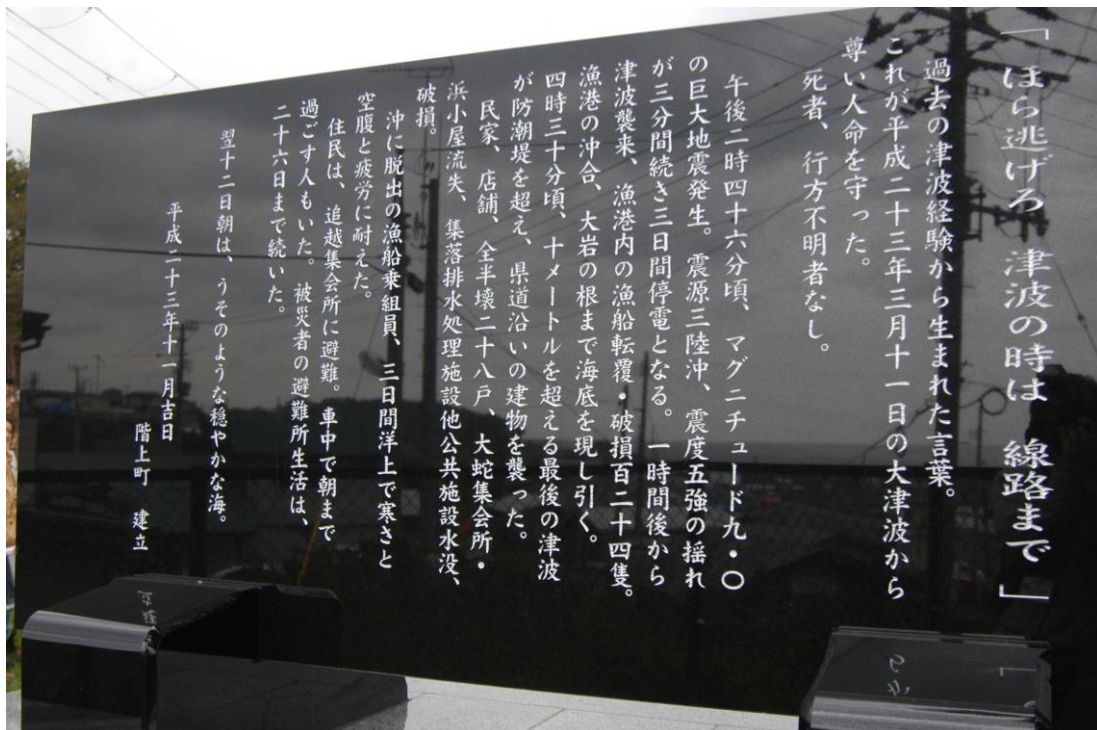 「ほら逃げろ　津波の時は　線路まで」
過去の津波経験から生まれた言葉。
これが平成二十三年三月十一日の大津波から
尊い人命を守った。
死者、行方不明者なし。
午後二時四十六分頃、マグニチュード九・〇
の巨大地震発生。震源三陸沖、震度五強の揺れ
が三分間続き三日間停電となる。一時間後から
津波襲来、漁港内の漁船転覆・破損百二十四隻。
漁港の沖合、大岩の根まで海底を現し引く。
四時三十分頃、十メートルを超える最後の津波
が防潮堤を超え、県道沿いの建物を襲った。
民家、店舗、全半壊二十八戸、大蛇集会所・
浜小屋流失、集落排水処理施設他公共施設水没、
破損。
沖に脱出の漁船乗組員、三日間洋上で寒さと
空腹と疲労に耐えた。
住民は、追越集会所に避難。車中で朝まで
過ごす人もいた。被災者の避難所生活は、
二十六日まで続いた。
翌十二日朝は、うそのような穏やかな海。
平成二十三年十一月吉日
階上町　建立